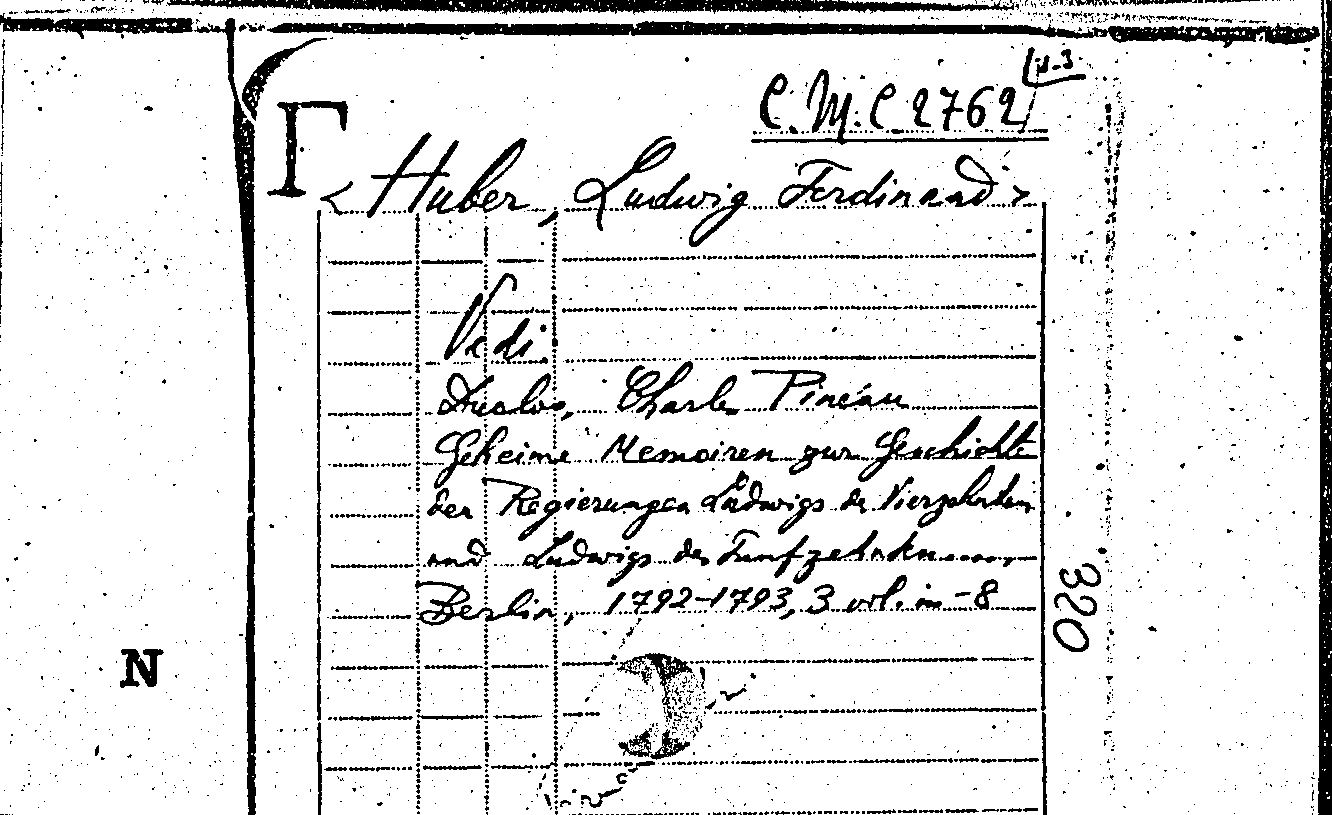 C.M.C. 2762/ II-3
Γ
< Huber, Ludwig Ferdinand >
Vedi:
Duclos, Charles Pineau
Geheime Memoiren zur Geschichte
der Regierungen Ludwigs des Vierzehnten
und Ludwigs des Funfzehnten....,
Berlin, 1792-1793, 3 vol. in-8
320
N